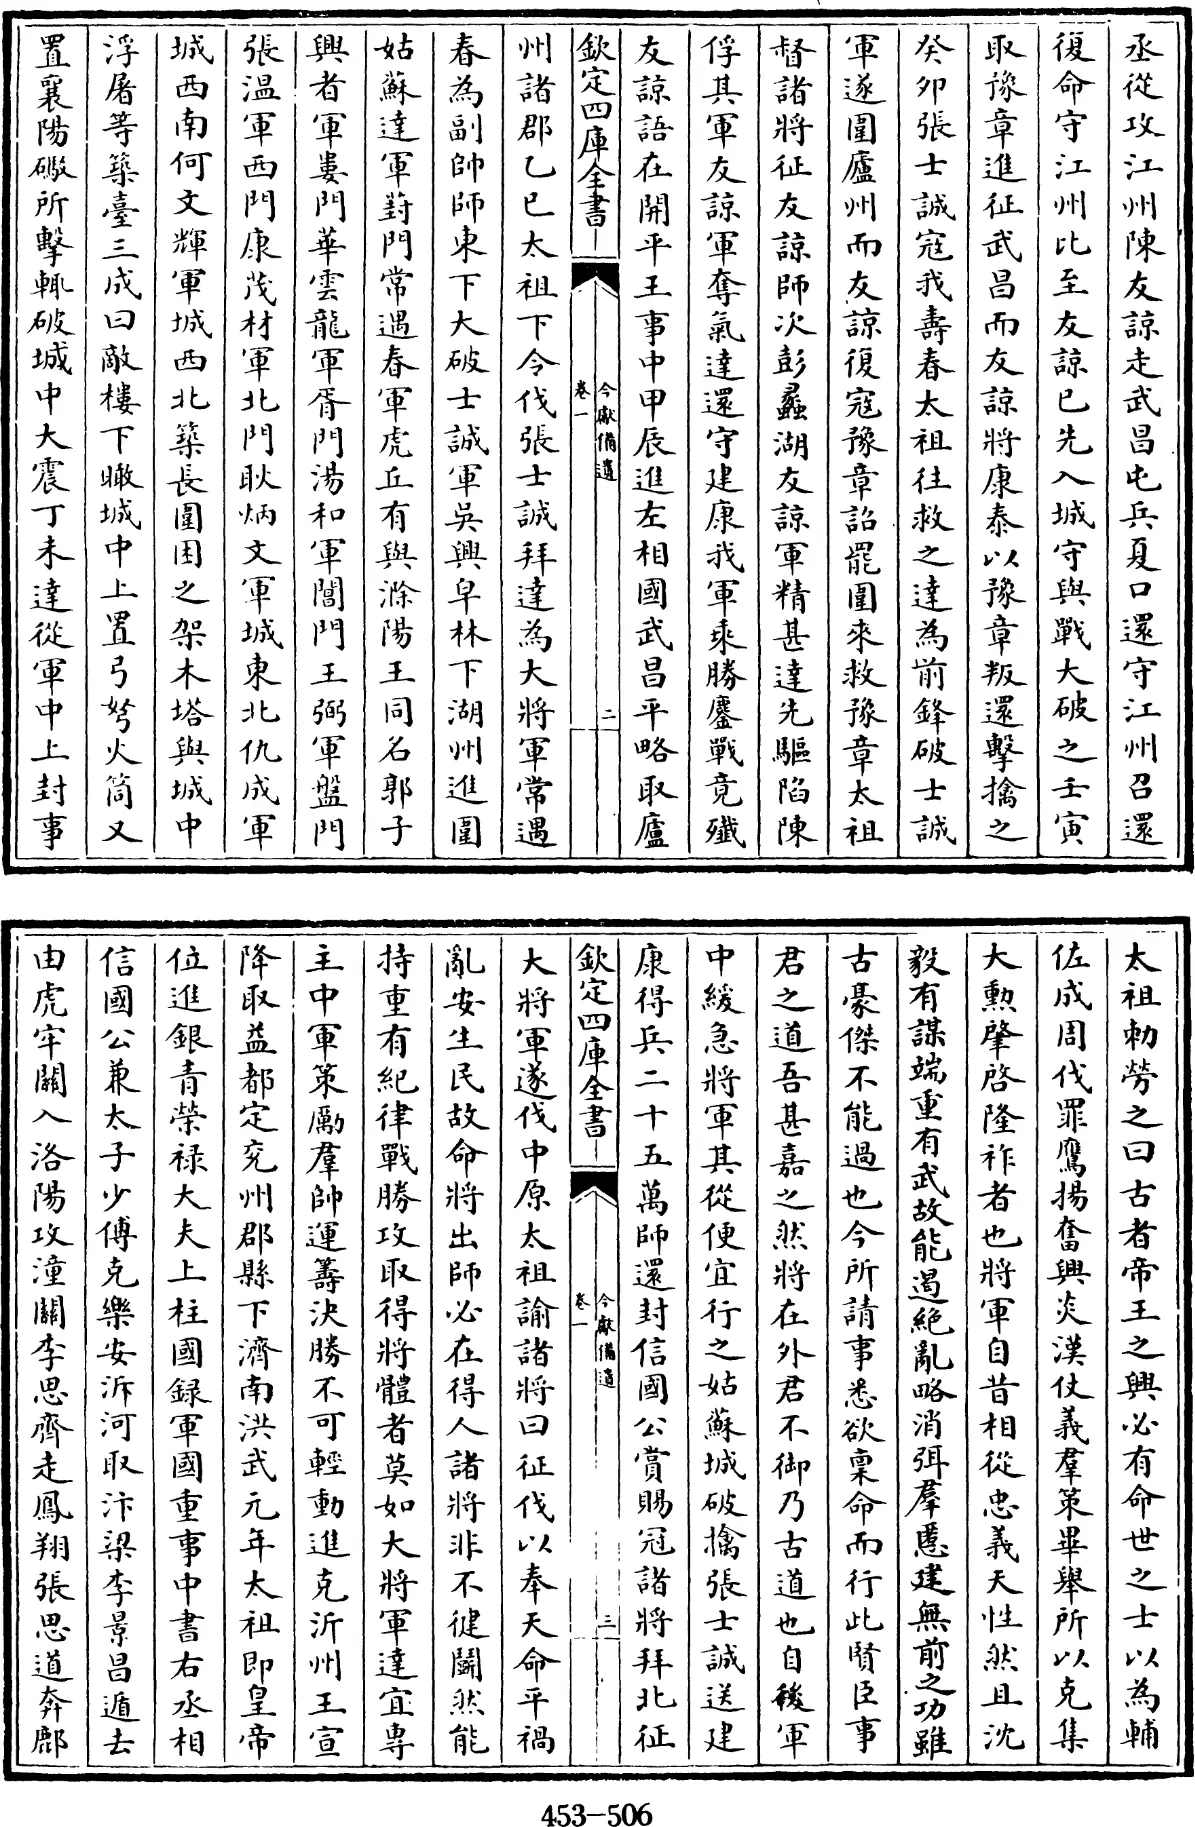 丞從攻江州陳友諒走武昌屯兵夏口還守江州召還
復命守江州比至友諒已先入城守與戰大破之壬寅
取豫章進征武昌而友諒將康泰以豫章叛還擊擒之
癸卯張士誠寇我壽春太祖往救之達為前鋒破士誠
軍遂圍廬州而友諒復寇豫章詔罷圍來救豫章太祖
督諸將征友諒師次彭蠡湖友諒軍精甚達先驅陷陳
俘其軍友諒軍奪氣達還守建康我軍乘勝鏖戰竟殲
友諒語在開平王事中甲辰進左相國武昌平略取廬
欽定四庫全書
今獻備遺
卷一
二
州諸郡乙巳太祖下令伐張士誠拜達為大將軍常遇
春為副帥師東下大破士誠軍吳興皁林下湖州進圍
姑蘇達軍葑門常遇春軍虎丘有與滁陽王同名郭子
興者軍婁門華雲龍軍胥門湯和軍閶門王弼軍盤門
張溫軍西門康茂材軍北門耿炳文軍城東北仇成軍
城西南何文輝軍城西北築長圍困之架木塔與城中
浮屠等築臺三成曰敵樓下瞰城中上置弓弩火筒又
置襄陽礮所擊輒破城中大震丁未達從軍中上封事
太祖勅勞之曰古者帝王之興必有命世之士以為輔
佐成周伐罪鷹揚奮興炎漢仗義羣策畢舉所以克集
大勳肇啓隆祚者也將軍自昔相從忠義天性然且沈
毅有謀端重有武故能遏絶亂略消弭羣慝建無前之功雖
古豪傑不能過也今所請事悉欲稟命而行此賢臣事
君之道吾甚嘉之然將在外君不御乃古道也自後軍
中緩急將軍其從便宜行之姑蘇城破擒張士誠送建
康得兵二十五萬師還封信國公賞賜冠諸將拜北征
欽定四庫全書
今獻備遺
卷一
三
大將軍遂伐中原太祖諭諸將曰征伐以奉天命平禍
亂安生民故命將出師必在得人諸將非不健鬬然能
持重有紀律戰勝攻取得將體者莫如大將軍達宜專
主中軍策勵羣帥運籌決勝不可輕動進克沂州王宣
降取益都定兖州郡縣下濟南洪武元年太祖即皇帝
位進銀青榮祿大夫上柱國錄軍國重事中書右丞相
信國公兼太子少傅克樂安泝河取汴梁李景昌遁去
由虎牢關入洛陽攻潼關李思齊走鳳翔張思道奔鄜
453-506